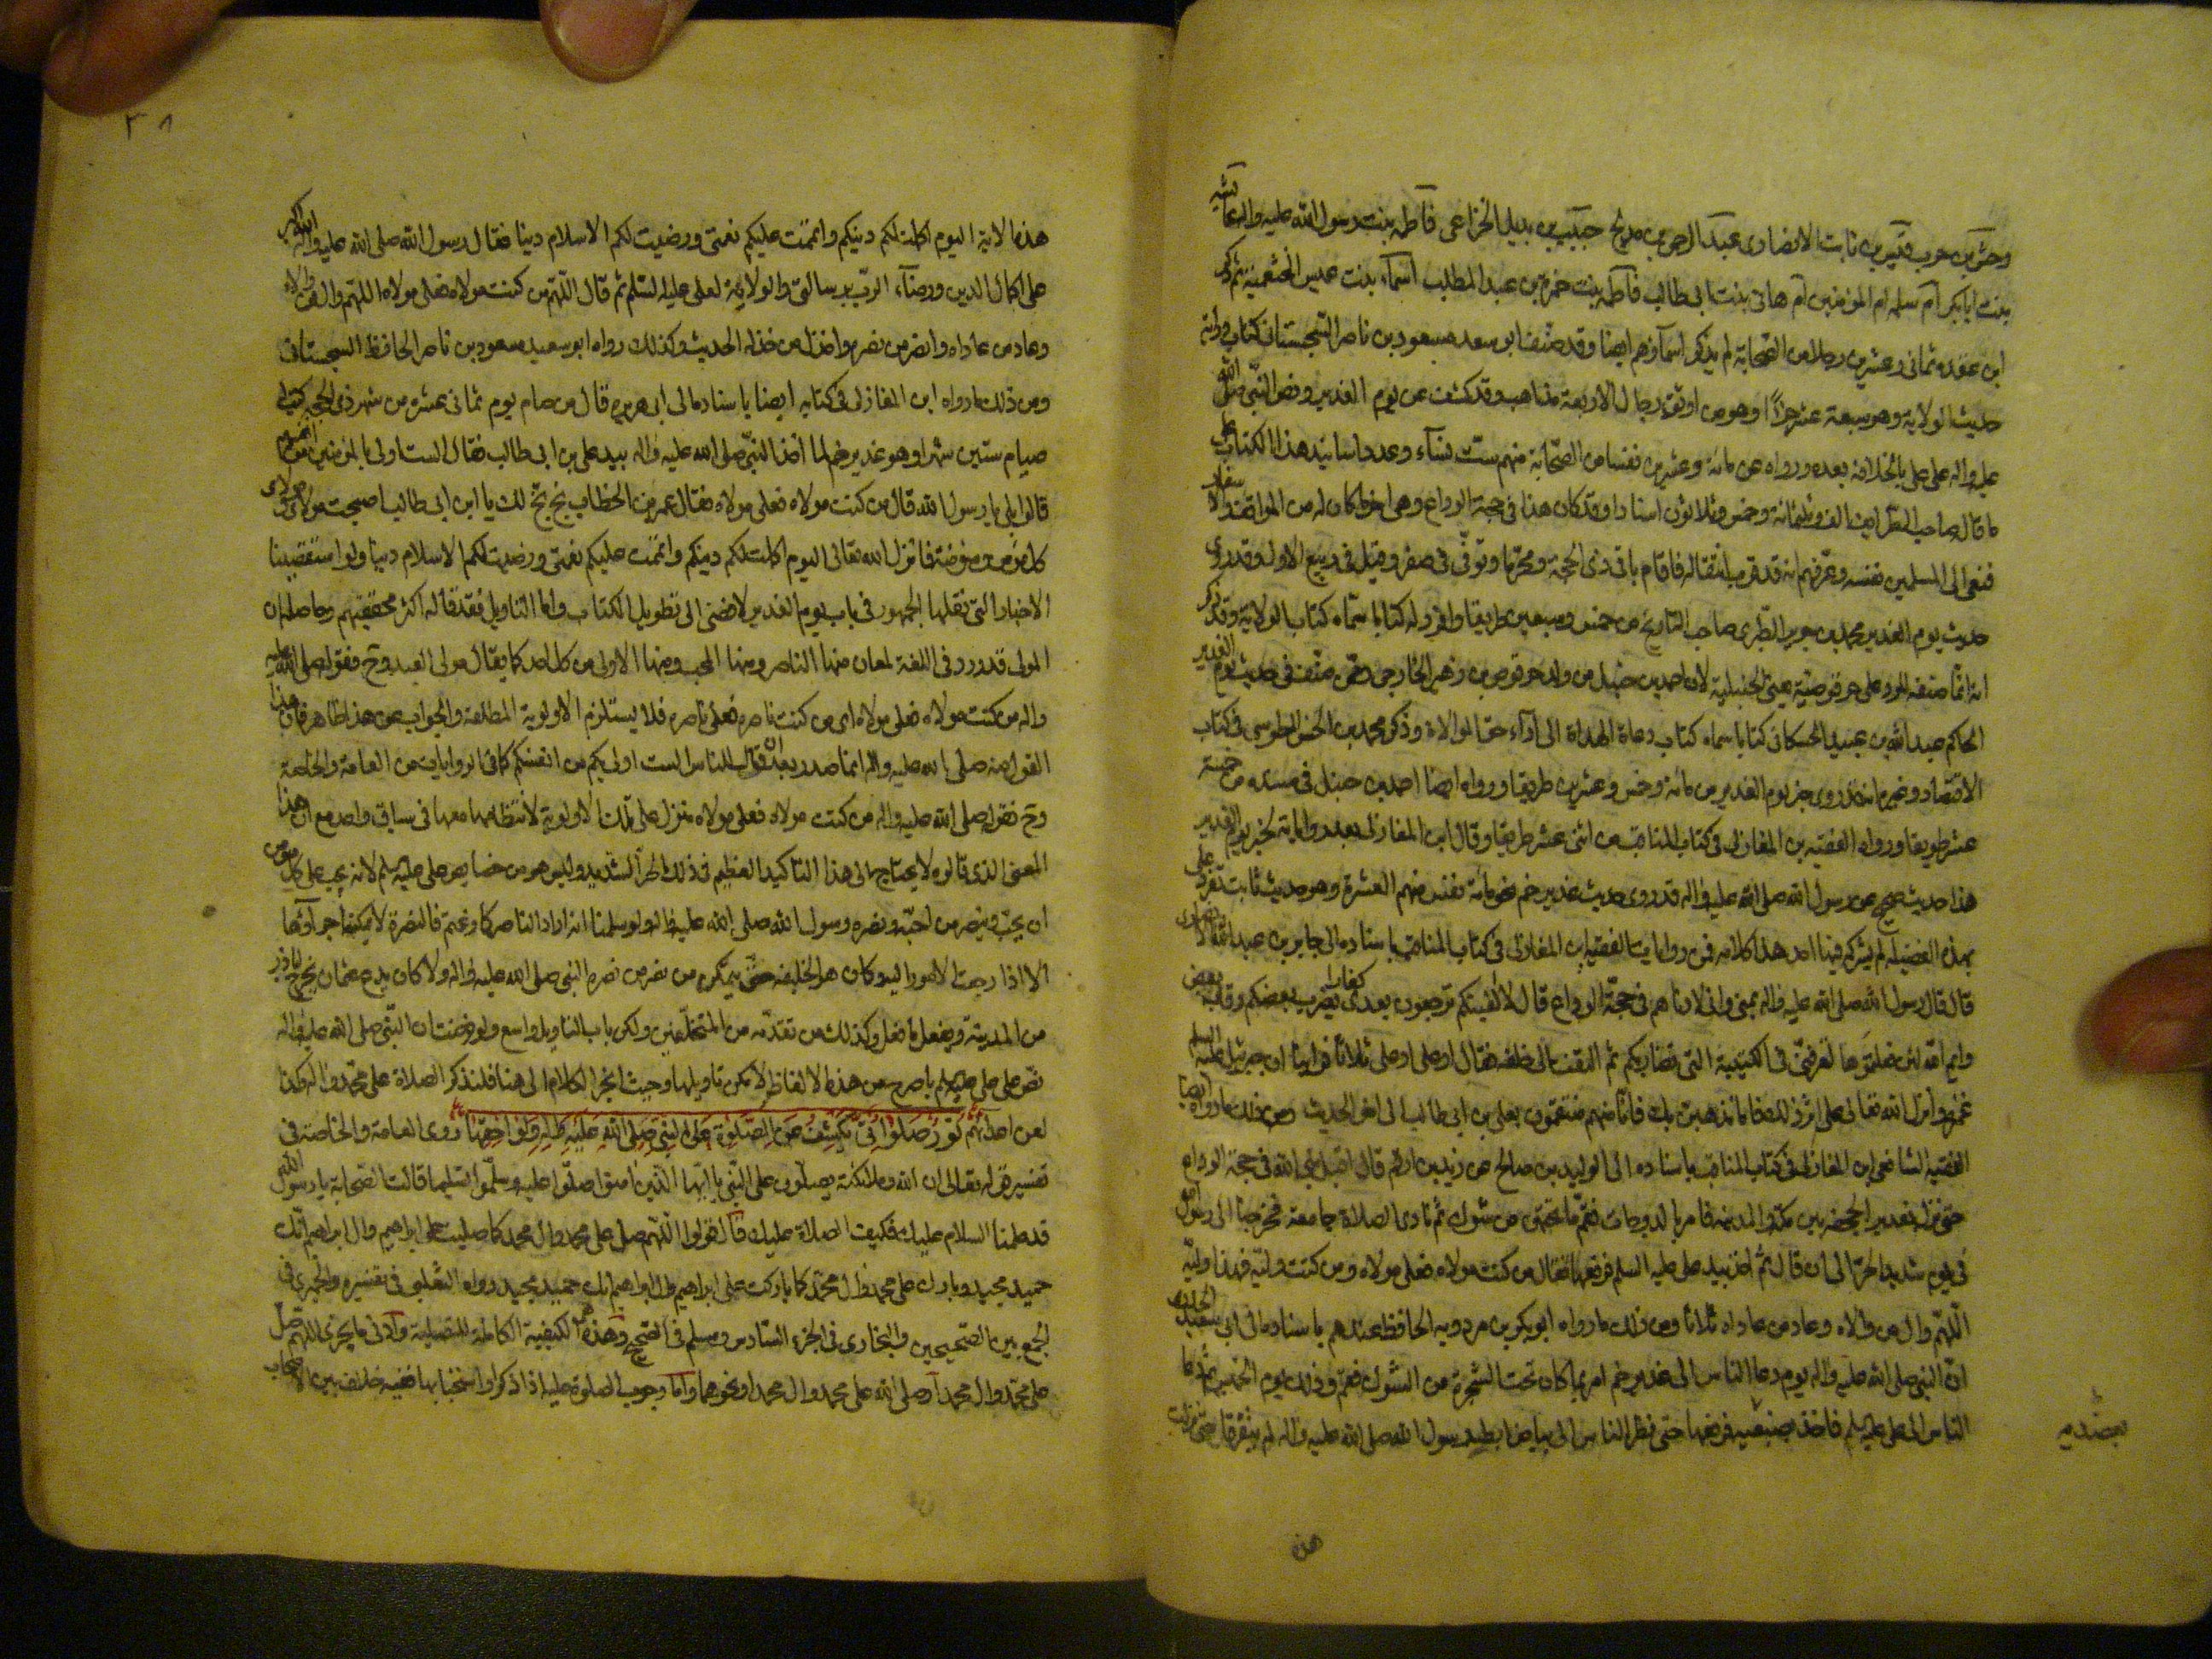 وحشى بن حرب قيس بن ثابت الانصارى عبد الرحمن بن مدلج حبيب بن بديل الخزاعى فاطمه بنت رسول الله صلى الله عليه واله عائشه
بنت ابابكر ام سلمه ام المؤمنين ام هانى بنت ابى طالب فاطمه بنت حمزه بن عبد المطلب اسماء بنت عميس الخثعميه ثم ذكر
ابن عقده ثمانى وعشرين رجلا من الصحابة لم يذكر اسماؤهم ايضا وقد صنف ابو سعد مسعود بن ناصر السجستانى كتاب دراية
حديث الولاية وهو سبعة عشر جزءا وهو من اوثق رجال الاربعة مذاهب وقد كشف عن يوم الغدير ونص النبى صلى الله
عليه واله على على بالخلافة بعده ورواه عن مائة وعشرين نفسا من الصحابة منهم ست نساء وعدد اسانيد هذا الكتاب على
ما قال صاحب الطرايف الف وثلثمائة وخمس وثلاثون اسنادا وقد كان هذا فى حجة الوداع وهى اخر ما كان له من المواقف والاسفار
فنعى الى المسلمين نفسه وعرفهم انه قد قرب انتقاله فاقام باقى ذى الحجة ومحرما وتوفى فى صفر وقيل فى ربيع الاول وقد روى
حديث يوم الغدير محمد بن جرير الطبرى صاحب التاريخ من خمس وسبعين طريقا وافرد له كتابا سماه كتاب الولاية وقد ذكر
انه انما صنفه للرد على حرقوصية يعنى الحنبلية لان احمد بن حنبل من ولد حرقوص بن زهير الخارجى وممن صنف فى حديث يوم الغدير
الحاكم عبيد الله بن عبد الله الحسكانى كتابا سماه كتاب دعاة الهداة الى اداء حق الموالاة وذكر محمد بن الحسن الطوسى فى كتاب
الاقتصاد وغيره انه قد روى خبر يوم الغدير من مائة وخمس وعشرين طريقا ورواه ايضا احمد بن حنبل فى مسنده من خمسة
عشر طريقا ورواه الفقيه بن المغازلى فى كتاب المناقب من اثنى عشر طريقا وقال ابن المغازلى بعد روايته لخبر يوم الغدير
هذا حديث صحيح عن رسول الله صلى الله عليه واله قد روى حديث غدير خم نحو مائة نفس منهم العشرة وهو حديث ثابت تفرد على
بهذه الفضيلة لم يشركه فيها احد هذا كلامه فمن روايات الفقيه ابن المغازلى فى كتاب المناقب باسناده الى جابر بن عبد الله الانصارى
قال قال رسول الله صلى الله عليه واله بمنى وانى لادناهم فى حجة الوداع قال لا الفينكم ترجعون بعدى كفارا يضرب بعضكم رقاب بعض
وايم الله لئن فعلتموها لتعرفننى فى الكتيبة التى تضاربكم ثم التفت الى خلفه فقال او على او على ثلاثا فراينا ان جبرئيل عليه السلم
غمزه وانزل الله تعالى على اثر ذلك فاما نذهبن بك فانا منهم منتقمون بعلى بن ابى طالب الى اخر الحديث ومن ذلك ما رواه ايضا
الفقيه الشافعى ابن المغازلى فى كتاب المناقب باسناده الى الوليد بن صالح عن زيد بن ارقم قال اقبل نبى الله فى حجة الوداع
حتى نزل بغدير الجحفه بين مكة والمدينه فامر بالدوحات فقم ما تحتهن من شوك ثم نادى الصلاة جامعة فخرجنا الى رسول الله
فى يوم شديد الحر الى ان قال ثم اخذ بيد على عليه السلم فرفعها فقال من كنت مولاه فعلى مولاه ومن كنت وليه فهذا وليه
اللهم وال من والاه وعاد من عاداه ثلاثا ومن ذلك ما رواه ابو بكر بن مردويه الحافظ عندهم باسناده الى ابى سعيد الخدرى
ان النبى صلى الله عليه واله يوم دعا الناس الى غدير خم امر بما كان تحت الشجرة من الشوك فقم وذلك يوم الخميس ثم دعا
الناس الى على عليه السلم فاخذ بضبعيه فرفعها حتى نظر الناس الى بياض ابطيه رسول الله صلى الله عليه واله لم يتفرقا حتى نزلت
هذه
٣٨
هذه الاية اليوم اكملت لكم دينكم واتممت عليكم نعمتى ورضيت لكم الاسلام دينا فقال رسول الله صلى الله عليه واله الله اكبر
على اكمال الدين ورضاء الرب برسالتى والولاية لعلى عليه السلم ثم قال اللهم من كنت مولاه فعلى مولاه اللهم وال من والاه
وعاد من عاداه وانصر من نصره واخذل من خذله الحديث وكذلك رواه ابو سعيد مسعود بن ناصر الحافظ السجستانى
ومن ذلك ما رواه ابن المغازلى فى كتابه ايضا باسناده الى ابى هريره قال من صام يوم ثمانى عشره من شهر ذى الحجه كتب له
صيام ستين شهرا وهو غدير خم لما اخذ النبى صلى الله عليه واله بيد على بن ابى طالب فقال الست اولى بالمؤمنين من انفسهم
قالوا بلى يا رسول الله قال من كنت مولاه فعلى مولاه فقال عمر بن الخطاب بخ بخ لك يا ابن ابى طالب اصبحت مولاى ومولى
كل مؤمن ومؤمنة فانزل الله تعالى اليوم اكملت لكم دينكم واتممت عليكم نعمتى ورضيت لكم الاسلام دينا ولو استقصينا
الاخبار التى نقلها الجمهور فى باب يوم الغدير لافضى الى تطويل الكتاب واما التاويل فقد قاله اكثر محققيهم وحاصله ان
المولى قد ورد فى اللغة لمعان منها الناصر ومنها المحب ومنها الاولى من كل احد كما يقال مولى العبد وح فقوله صلى الله عليه
واله من كنت مولاه فعلى مولاه اى من كنت ناصره فعلى ناصره فلا يستلزم الاولوية المطلقة والجواب عن هذا ظاهر فان هذا
القول منه صلى الله عليه واله انما صدر بعد ان قال للناس الست اولى بكم من انفسكم كما فى الروايات من العامة والخاصة
وح فقوله صلى الله عليه واله من كنت مولاه فعلى مولاه منزل على تلك الاولوية لانتظامها معها فى سياق واحد مع ان هذا
المعنى الذى قالوه لا يحتاج الى هذا التاكيد العظيم فى ذلك الحر الشديد وليس هو من خصايص على عليه السلم لانه يجب على كل مؤمن
ان يحب وينصر من احبه ونصره رسول الله صلى الله عليه واله ولو سلمنا انه اراد الناصر كما زعمتم فالنصرة لا يمكنه اجراؤها
الا اذا رجعت الامور اليه وكان هو الخليفه حتى يتمكن من نصر من نصره النبى صلى الله عليه واله ولا كان يدع عثمان يخرج اباذر
من المدينة ويفعل ما فعل وكذلك من تقدمه من المتخلفين ولكن باب التاويل واسع ولو فرضت ان النبى صلى الله عليه واله
نص على على عليه السلم باصرح من هذه الالفاظ لامكن تاويلها وحيث انجر الكلام الى هنا فلنذكر الصلاة على محمد واله وكذا
لعن اعدائهم نور صلواتى يكشف عن الصلوة على النبى صلى الله عليه واله ولواحقها روى العامة والخاصة فى
تفسير قوله تعالى ان الله وملائكته يصلون على النبى يا ايها الذين امنوا صلوا عليه وسلموا تسليما قالت الصحابة يا رسول الله
قد علمنا السلام عليك فكيف الصلاة عليك قال قولوا اللهم صل على محمد وال محمد كما صليت على ابراهيم وال ابراهيم انك
حميد مجيد وبارك على محمد وال محمد كما باركت على ابراهيم وال ابراهيم انك حميد مجيد رواه الثعلبى فى تفسيره والحميدى فى
الجمع بين الصحيحين والبخارى فى الجزء السادس ومسلم فى الصحيح وهذه هى الكيفية الكاملة للتصلية وادنى ما يجزى اللهم صل
على محمد وال محمد او صلى الله على محمد وال محمد او نحوهما واما وجوب الصلوة عليه اذا ذكر او استحبابها ففيه خلاف بين الاصحاب